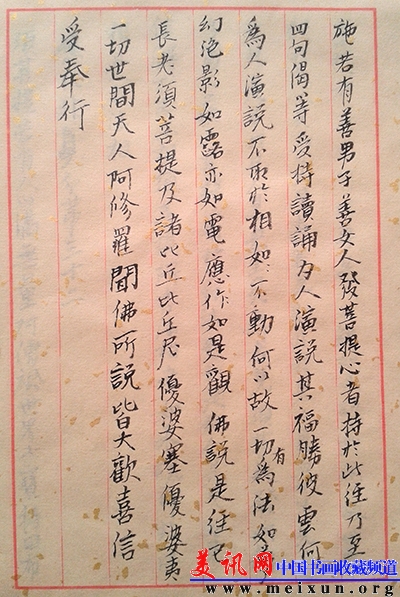 施若有善男子善女人發菩提心者持於此經乃至
四句偈等受持讀誦為人演說其福勝彼雲何
為人演說不取於相如〻不動何以故一切有為法如夢
幻泡影如露亦如電應作如是觀佛說是經已
長老須菩提及諸比丘比丘尼優婆塞優婆夷
一切世間天人阿修羅聞佛所說皆大歡喜信
受奉行
美讯网 中国书画收藏频道
www.meixun.org